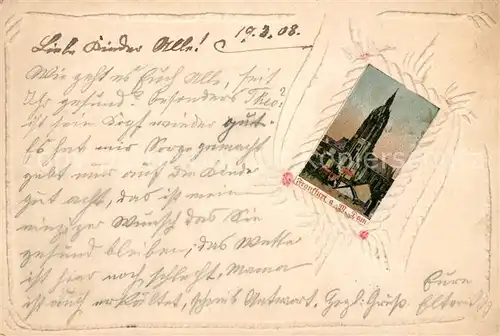 19.3.08.
Liebe Kinder Alle!
Wie geht es Euch Alle, seit
Ihr gesund? besonders Theo?
ist sein Kopf wieder gut.
Es hat mir Sorge gemacht
gebt nur auf die Kinder
gut acht, das ist mein
einziger Wunsch das Sie
gesund bleiben, das Wetter
ist hier noch schlecht, Mama
ist auch erkältet, schreibt Antwort. Hgzl. Gruß.
Eure
Eltern
Frankfurt a. Main